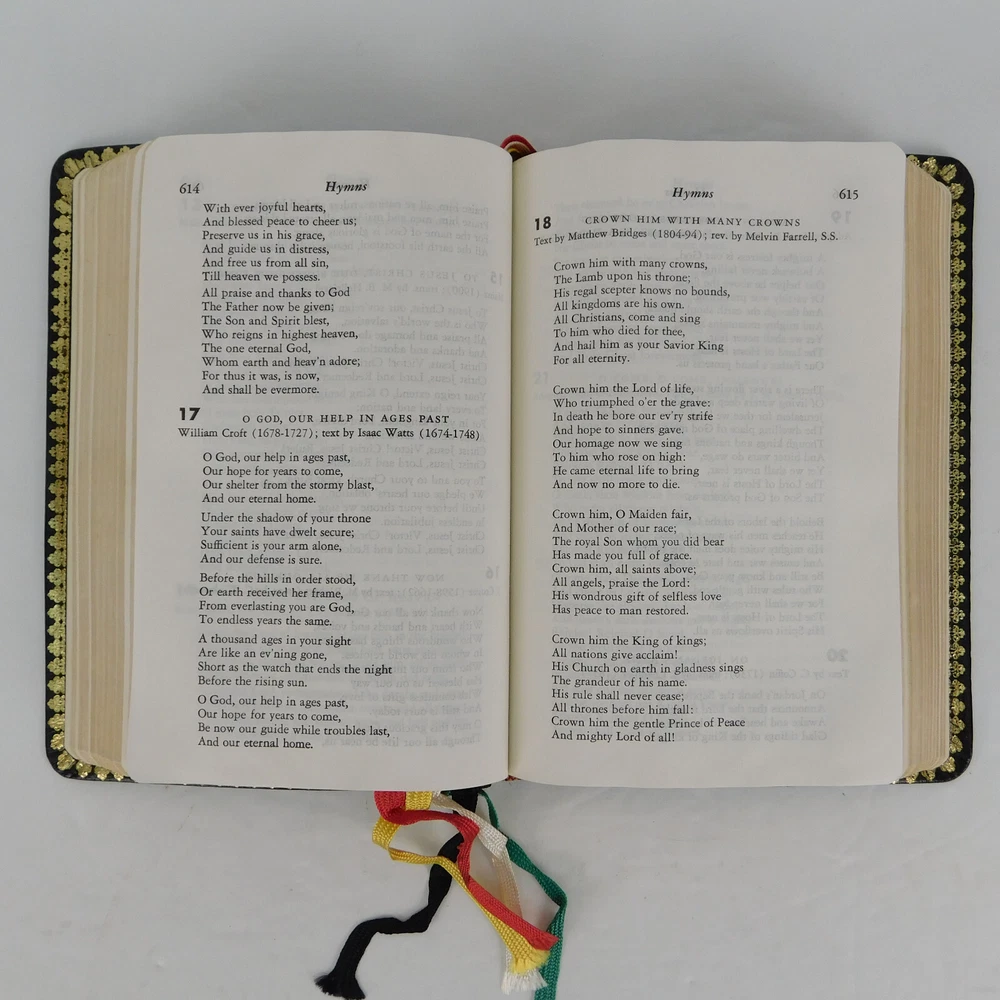 614
Hymns
With ever joyful hearts,
And blessed peace to cheer us;
Preserve us in his grace,
And guide us in distress,
And free us from all sin,
Till heaven we possess.
All praise and thanks to God
The Father now be given;
The Son and Spirit blest,
Who reigns in highest heaven,
The one eternal God,
Whom earth and heav'n adore;
For thus it was, is now,
And shall be evermore.
17 O GOD, OUR HELP IN AGES PAST
William Croft (1678-1727); text by Isaac Watts (1674-1748)
O God, our help in ages past,
Our hope for years to come,
Our shelter from the stormy blast,
And our eternal home.
Under the shadow of your throne
Your saints have dwelt secure;
Sufficient is your arm alone,
And our defense is sure.
Before the hills in order stood,
Or earth received her frame,
From everlasting you are God,
To endless years the same.
A thousand ages in your sight
Are like an ev'ning gone,
Short as the watch that ends the night
Before the rising sun.
O God, our help in ages past,
Our hope for years to come,
Be now our guide while troubles last,
And our eternal home.
Hymns
615
18 CROWN HIM WITH MANY CROWNS
Text by Matthew Bridges (1804-94); rev. by Melvin Farrell, S.S.
Crown him with many crowns,
The Lamb upon his throne;
His regal scepter knows no bounds,
All kingdoms are his own.
All Christians, come and sing
To him who died for thee,
And hail him as your Savior King
For all eternity.
Crown him the Lord of life,
Who triumphed o'er the grave:
In death he bore our ev'ry strife
And hope to sinners gave.
Our homage now we sing
To him who rose on high:
He came eternal life to bring
And now no more to die.
Crown him, O Maiden fair,
And Mother of our race;
The royal Son whom you did bear
Has made you full of grace.
Crown him, all saints above;
All angels, praise the Lord:
His wondrous gift of selfless love
Has peace to man restored.
Crown him the King of kings;
All nations give acclaim!
His Church on earth in gladness sings
The grandeur of his name.
His rule shall never cease;
All thrones before him fall:
Crown him the gentle Prince of Peace
And mighty Lord of all!